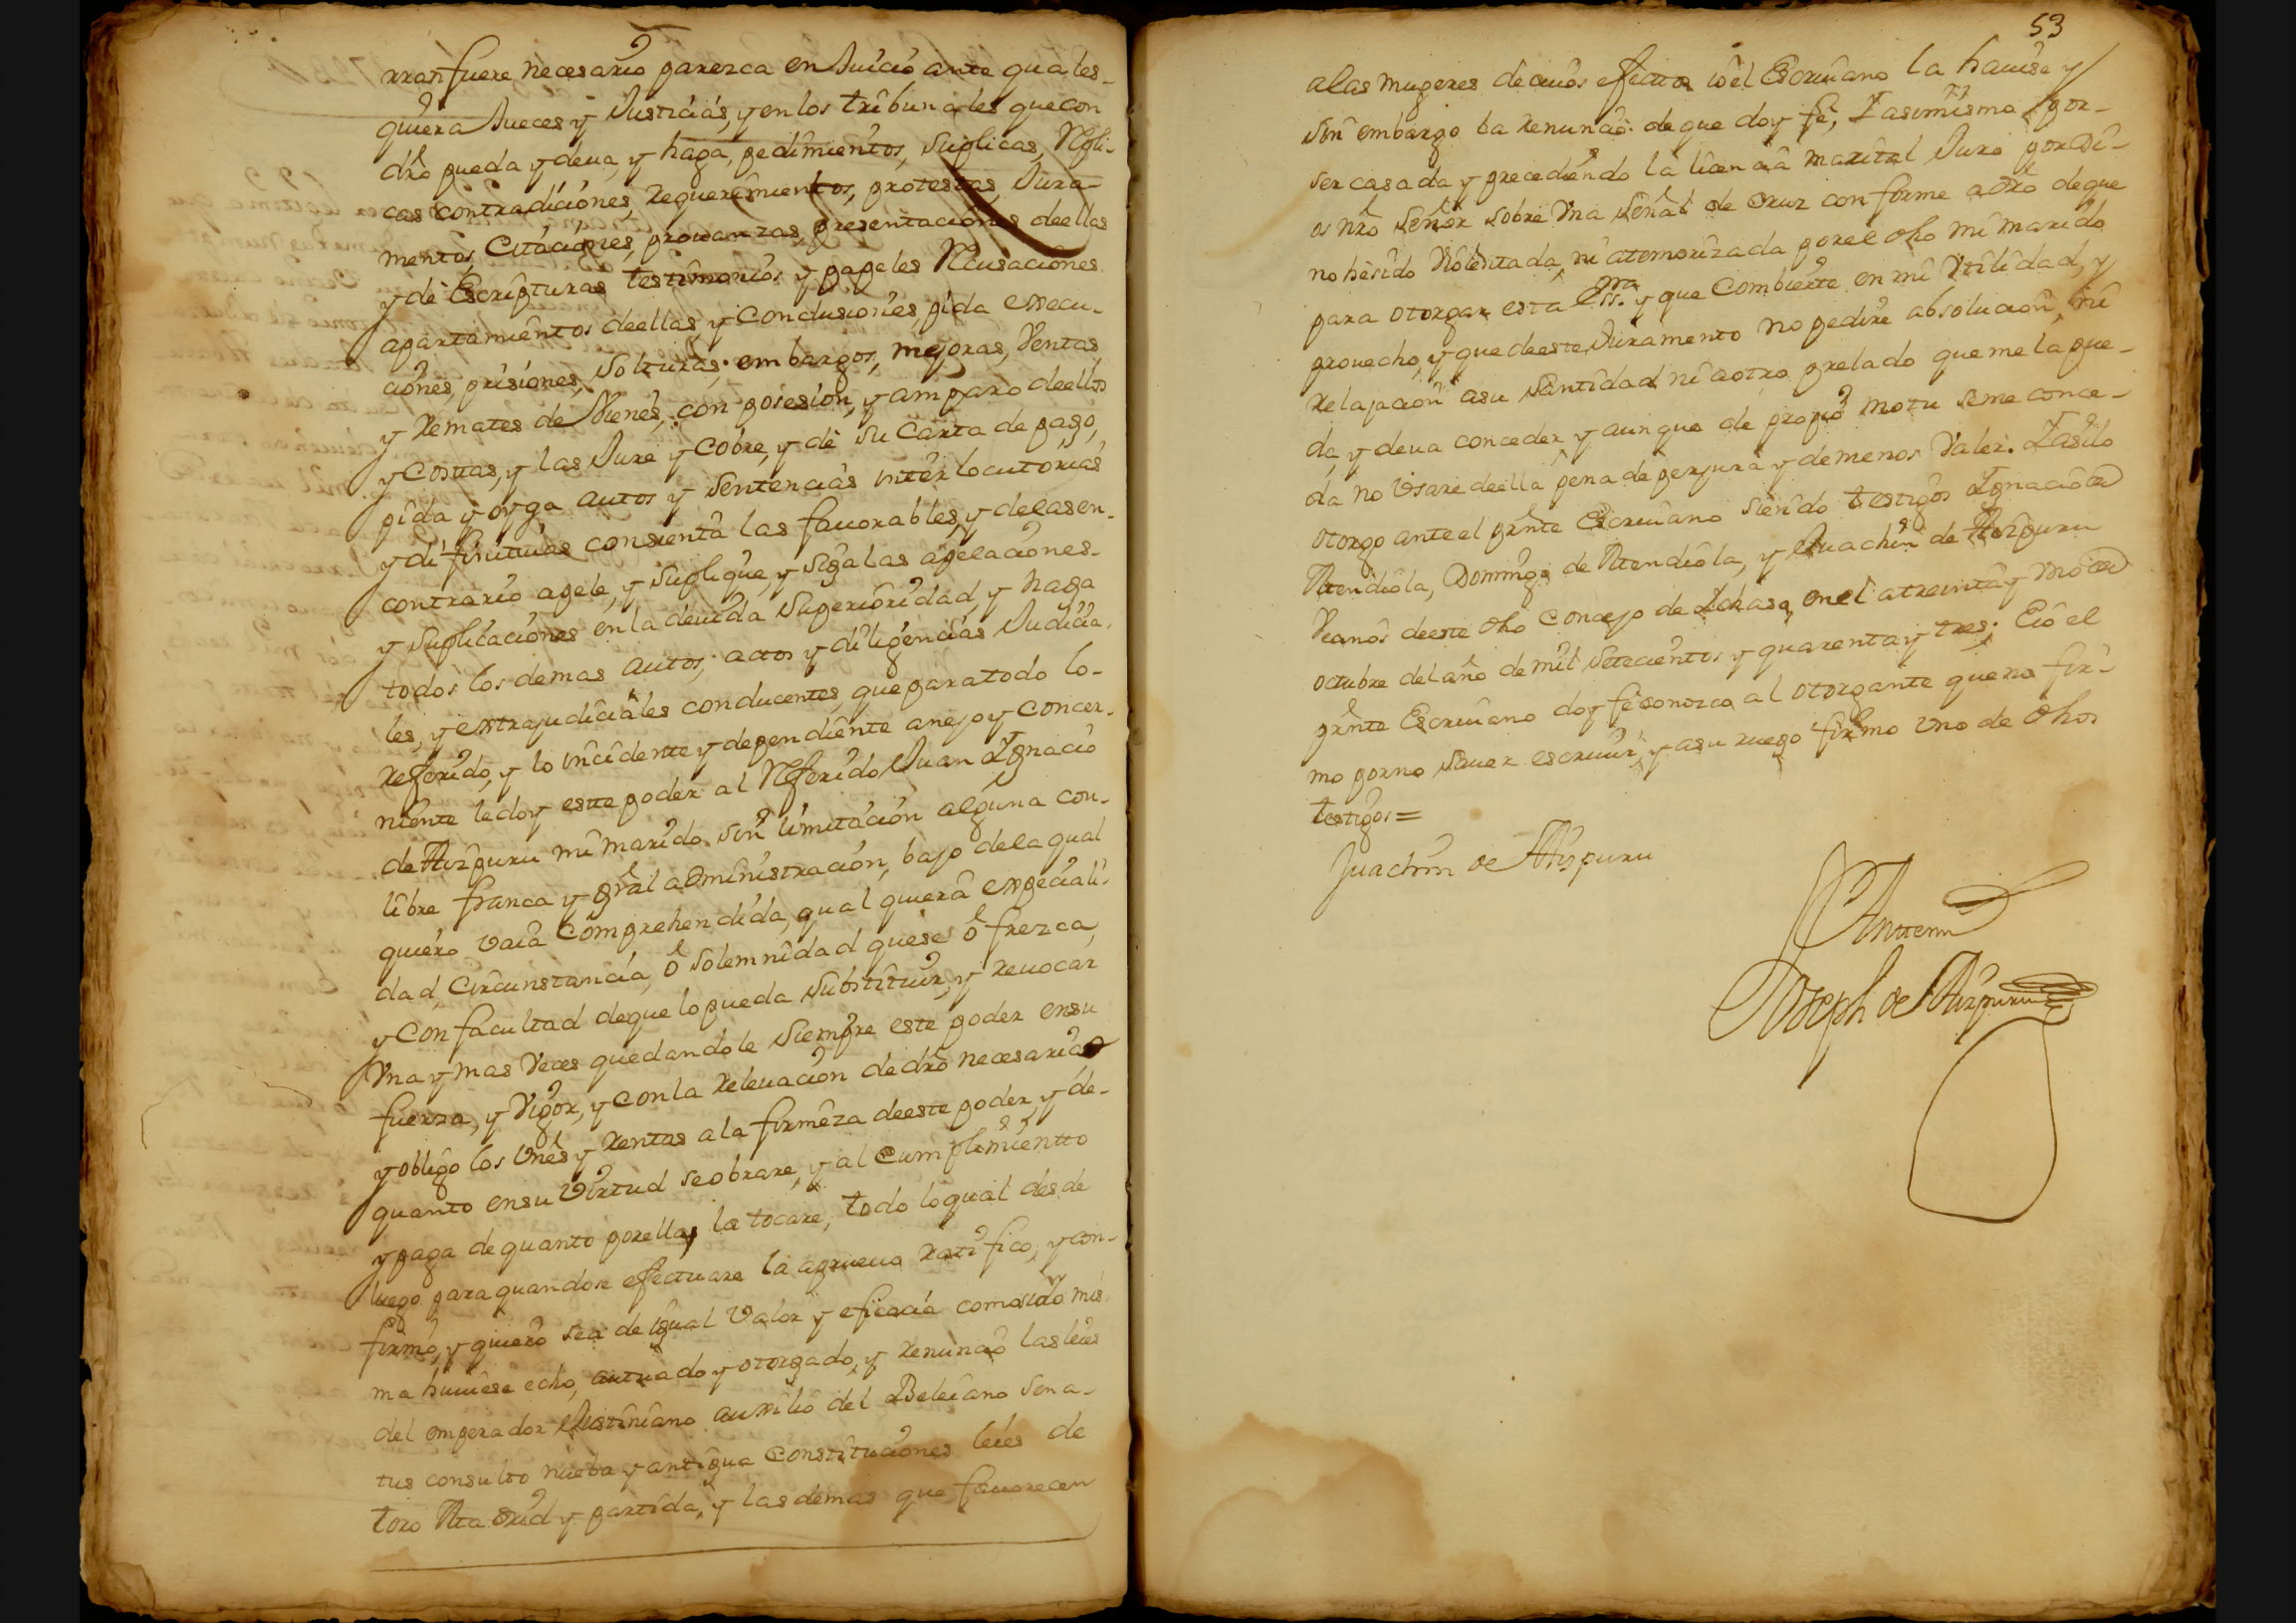 rran fuere necesario parezca en Juicio ante quales-
quiera Jueces y Justicias, y en los tribunales que con
dro pueda y deua, y haga, pedimientos, suplicas, Repli-
cas contradiciones, requerimientos, protestas, Jura-
mentos, Citaciones, prouanzas, presentaciones deellas
y de Escripturas testimonios y papeles Recusaciones
apartamientos deellas y Conclusiones, pida execu-
ciones, prisiones, solturas, embargos, mejoras, Ventas
y Remates de Vienes, con posesion, y amparo deellos
y Costtas, y las Jure y Cobre, y dè su Carta de pago,
pida y oyga autos y sentencias interlocutorias
y difinitiuas consienta las fauorables, y delas en
contrario apele, y suplique, y siga las apelaciones
y suplicaciones en la deuida Superioridad, y haga
todos los demas autos, actos y diligencias Judicia-
les, y extrajudiciales conducentes, que para todo lo-
Referido, y lo incidente y dependiente anejo y concer-
niente le doy estte poder al Referido Juan Ignacio
de Aizpuru mi marido sin limitacion alguna con-
libre franca y gral administracion, bajo dela qual
quiero vaia comprehendida, qual quiera expeciali-
dad, Circunstancia, ò solemnidad quese ofrezca,
y Con facultad deque lo pueda substituir, y reuocar
Vna y mas Veces quedandole Siempre este poder en su
fuerza, y Vigor, y con la Releuacion de dro necesaria
y obligo los Vnes y Rentas ala firmeza deeste poder, y de-
quanto en su Virtud se obrare, y al cumplimientto
y paga de quanto por ella, la tocare, todo lo qual desde
luego para quando se efectuare la aprueuo ratifico, y con-
firmo, y quiero sea de igual Valor y eficacia como si io mis
ma huuiese echo, autuado y otorgado, y Renuncio las leies
del emperador Justiniano auxilio del Beleiano Sena-
tus consulto nueba y antigua Constituciones leies de
toro Madrid y partida, y las demas que fauorecen
53
alas mugeres de cuios efectos io el Escriuano la hauise y
sin embargo ba Renuncio: de que doy fe; Iasimismo por-
ser casada y precediendo la licencia marital Juro por Di-
os nro Señor sobre Vna señal de Cruz conforme a dro de que
no he sido Violentada, ni atemorizada por el dho mi marido
para otorgar esta Essra y que Combierte en mi Vtilidad, y
prouecho, y que deeste Juramento no pedire absolucion, ni
relajacion asu Santidad ni aotro prelado que me la pue-
da, y deua conceder, y aunque de propio motu seme conce-
da no Vsare deella pena de perjura y de menos Valer. Iasi lo
otorgo ante el prnte Escriuano siendo testigos Ignacio de
Atendiola, Domingo de Atendiola, y Juachin de Aizpuru
Vecinos deeste dho Concejo de en el a treinta y Vno de
octubre del año de mil Setecientos y quarenta y tres; E io el
prnte Escriuano doy fe conozco al otorgante que no fir-
mo por no sauer escriuir, y asu ruego firmo vno de dhos
testigos =
Juachin de Aizpuru
Antte mi
Joseph de Aizpuru